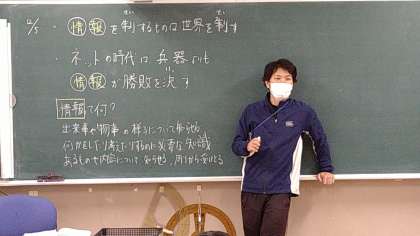 2/5 ・情報を制するものは世界を制す
せい せい
・ネットの時代は兵器よりも
情報が勝敗を決す
情報って何?
出来事や物事の様子について知らせ
何かをしたり考えたりするのに必要な知識
あるものや内容について知らせる、